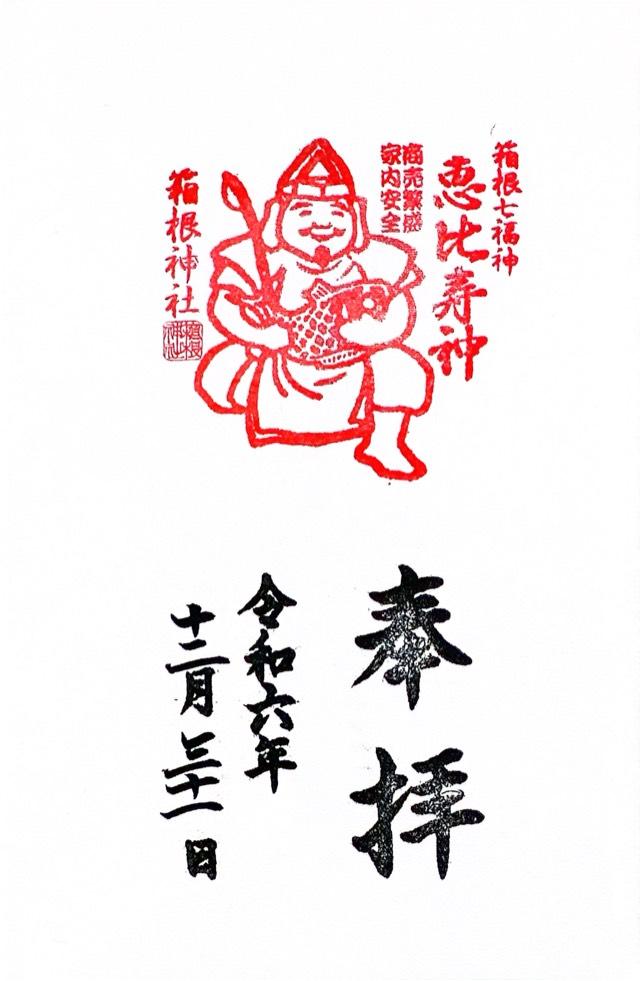 箱根七福神
恵比寿神
商売繁盛
家内安全
箱根神社
奉拝
令和六年
十二月三十一日